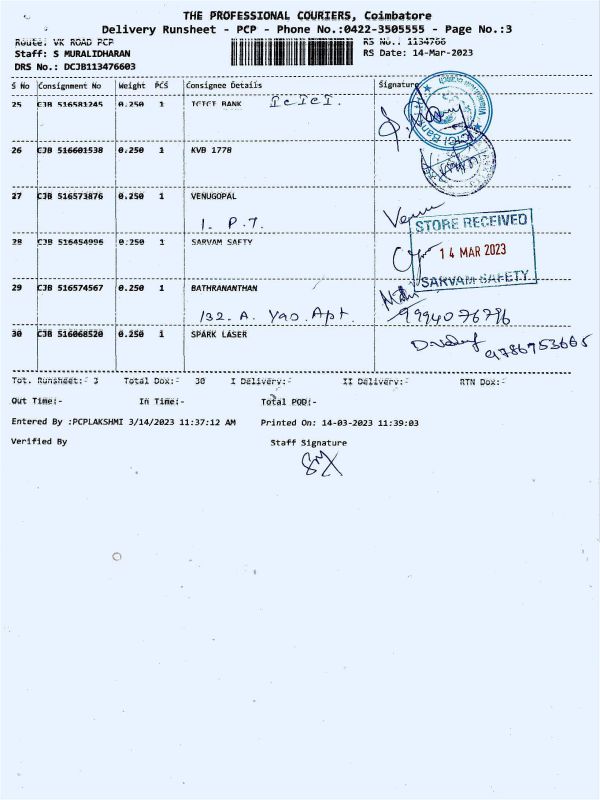 THE PROFESSIONAL COURIERS, Coimbatore
Delivery Runsheet - PCP - Phone No.:0422-3505555 - Page No.:3
Route: VK ROAD PCP RS No.: 1134766
Staff: S MURALIDHARAN RS Date: 14-Mar-2023
DRS No.: DCJB113476603
S No Consignment No Weight PCS Consignee Details Signature
25 CJB 516581245 0.250 1 ICICI BANK ICICI.
26 CJB 516601538 0.250 1 KVB 1778
27 CJB 516573876 0.250 1 VENUGOPAL Venu
1. P.T.
STORE RECEIVED
28 CJB 516454996 0.250 1 SARVAM SAFTY
14 MAR 2023
SARVAM SAFETY
29 CJB 516574567 0.250 1 BATHRANANTHAN
132. A. Yao. Apt. 9994076796
30 CJB 516068520 0.250 1 SPARK LASER
9786953665
Tot. Runsheet:- 3 Total Dox:- 30 I Delivery:- II Delivery:- RTN Dox:-
Out Time:- In Time:- Total POD:-
Entered By :PCPLAKSHMI 3/14/2023 11:37:12 AM Printed On: 14-03-2023 11:39:03
Verified By Staff Signature